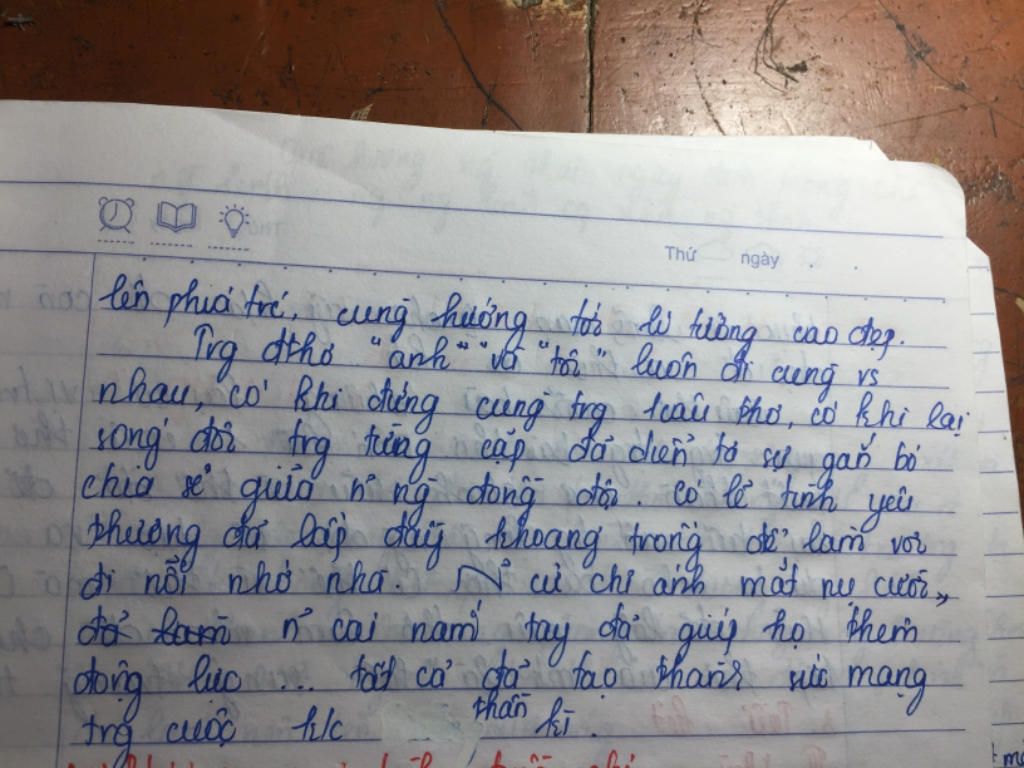 Thứ ngày
lên phía trc, cung hướng tới lí tưởng cao đẹp.
Trg đthơ "anh" và "tôi" luôn đi cung vs
nhau, có khi đứng cung trg 1 câu thơ, có khi lại
song đôi trg từng cặp đã diễn tả sự gắn bó
chia sẻ giữa n~ ng đồng đội. Có lẽ tình yêu
thương đã lấp đầy khoang trống để làm vơi
đi nỗi nhớ nhà. N~ cử chỉ ánh mắt nụ cười,,
n~ cai nắm tay đã giúp họ thêm
động lực ... tất cả đã tạo thành sức mạng
trg cuộc k/c thần kì.